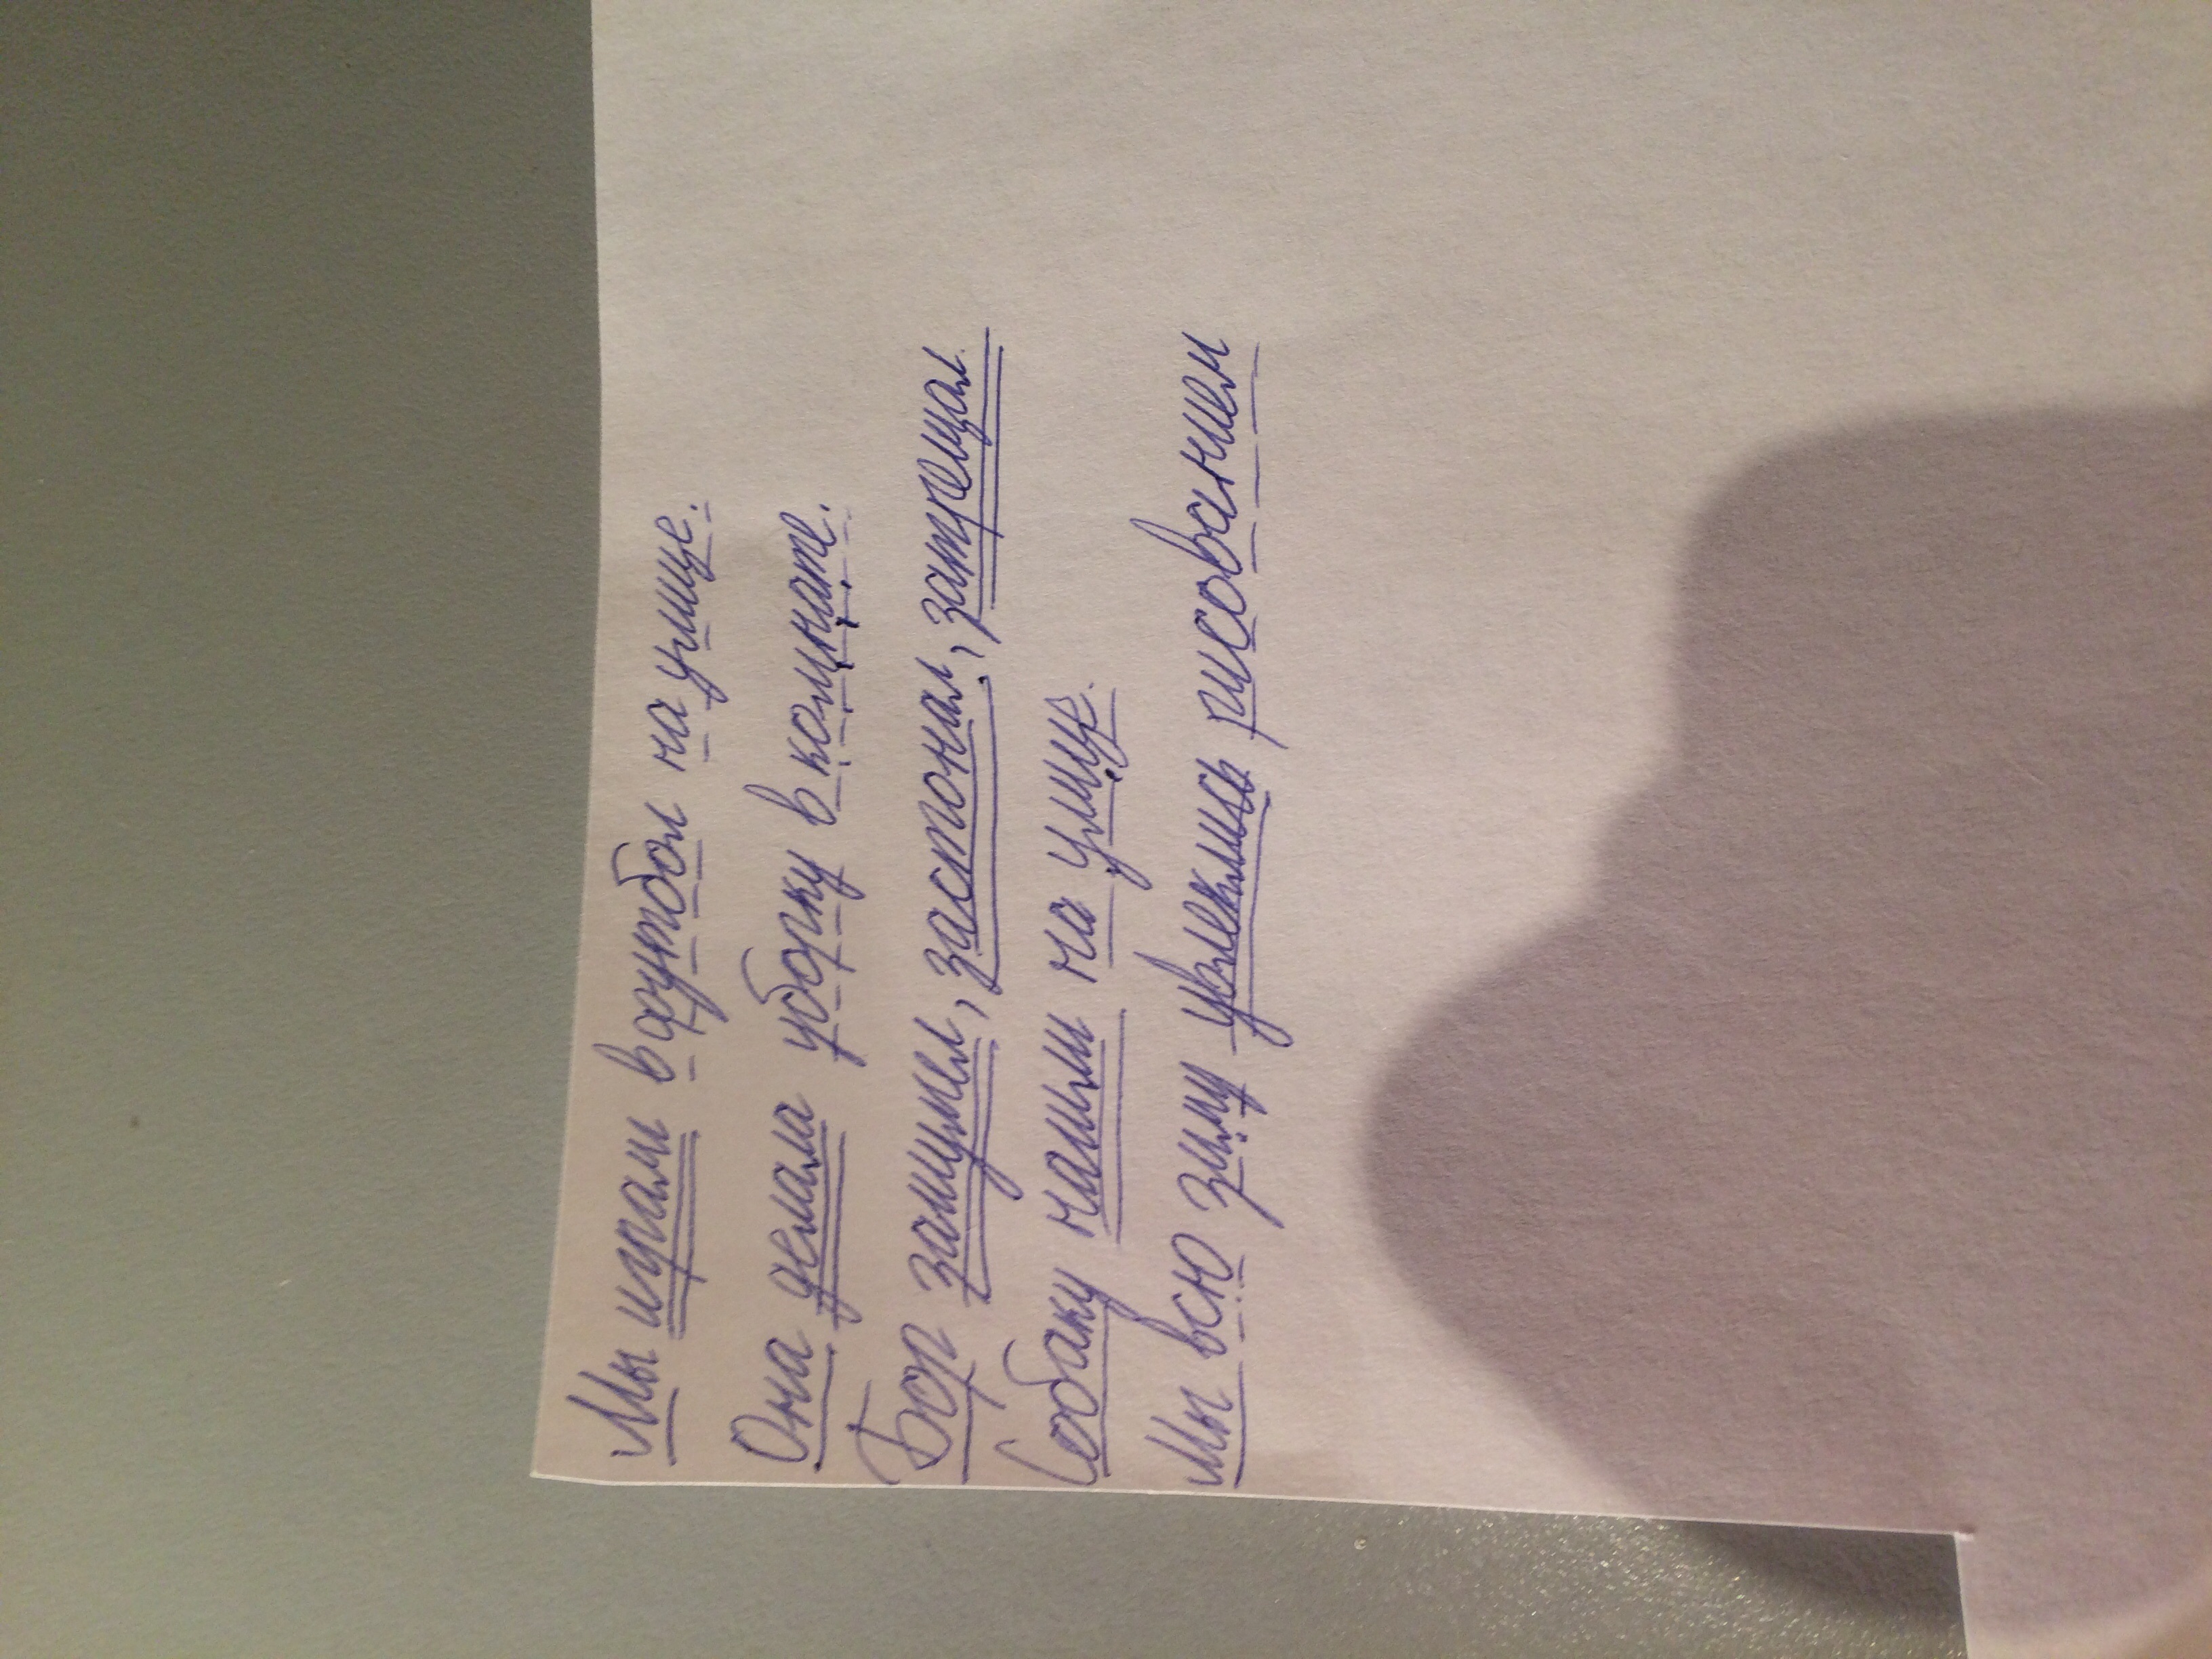 Мы играли в футбол на улице.
Она делала уборку в комнате.
Бор зашумел, застонал, затрещал.
Собаку нашли на улице.
Мы всю зиму увлеклись рисованием